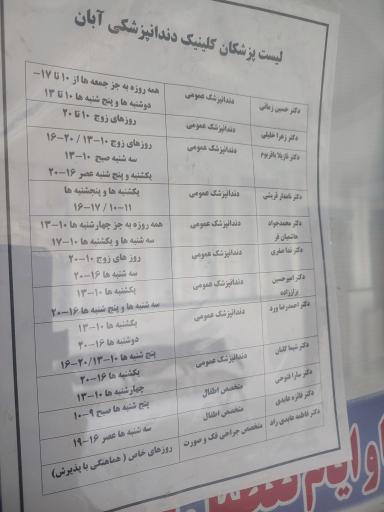 لیست پزشکان کلینیک دندانپزشکی آبان
دکتر حسین زمانی دندانپزشک عمومی همه روزه به جز جمعه ها از ۱۰ تا ۱۷-
دوشنبه ها و پنج شنبه ها ۱۰ تا ۱۳
دکتر زهرا خلیلی دندانپزشک عمومی روزهای زوج ۱۰ تا ۲۰
دکتر نازیلا باقرپوم دندانپزشک عمومی روزهای زوج ۱۰-۱۳ / ۲۰-۱۶
سه شنبه صبح ۱۰-۱۳
یکشنبه و پنج شنبه عصر ۱۶-۲۰
دکتر نامدار قریشی دندانپزشک عمومی یکشنبه ها و پنجشنبه ها
۱۰-۱۱ / ۱۶-۱۷
دکتر محمدجواد دندانپزشک عمومی همه روزه به جز چهارشنبه ها ۱۰-۱۳
هاشمیان فر سه شنبه ها و یکشنبه ها ۱۰-۱۷
دکتر ندا صفری دندانپزشک عمومی روز های زوج ۱۰-۲۰
سه شنبه ها ۱۶-۲۰
دکتر امیرحسین دندانپزشک عمومی یکشنبه ها ۱۰-۱۳
بزاززاده سه شنبه ها و پنج شنبه ها ۱۶-۲۰
دکتر احمدرضا ورد دندانپزشک عمومی یکشنبه ها ۱۰-۱۳
دوشنبه ها ۱۶-۲۰
پنج شنبه ها ۱۰-۱۳/۲۰-۱۶
دکتر شیما کلبان دندانپزشک عمومی یکشنبه ها ۱۶-۲۰
چهارشنبه ها ۱۰-۱۳
دکتر سارا فتوحی متخصص اطفال پنج شنبه ها صبح ۹-۱۰
دکتر فائزه عابدی متخصص اطفال سه شنبه ها عصر ۱۶-۱۹
دکتر فاطمه عابدی راد متخصص جراحی فک و صورت روزهای خاص ( هماهنگی با پذیرش)